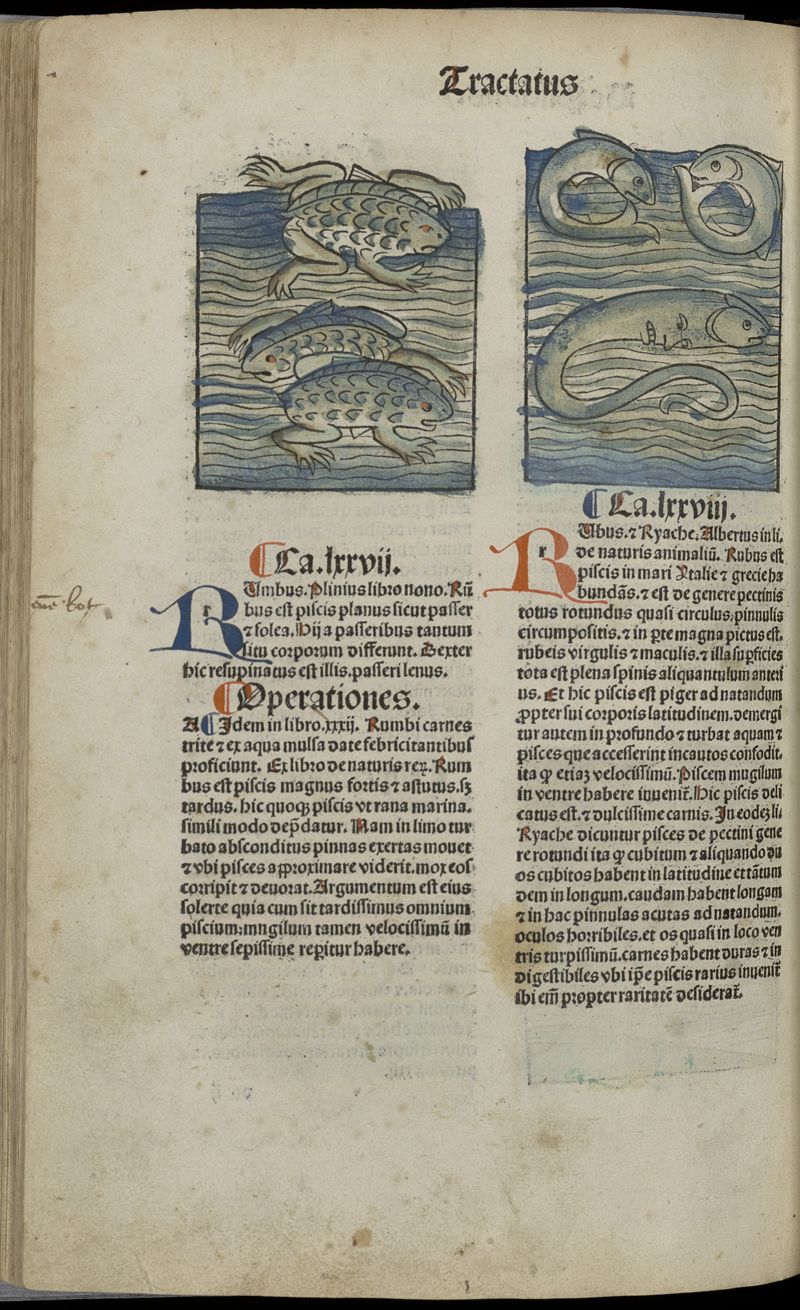 Tractatus
¶Ca.lxxvij.
RUmbus. Plinius libro nono. Rū
bus est piscis planus sicut passer
⁊ solea. Hij a passeribus tantum
situ corporum differunt. Dexter
hic resupinatus est illis. passeri leuus.
¶Operationes.
A ¶Idem in libro .xxxij. Rumbi carnes
trite ⁊ ex aqua mulsa date febricitantibus
proficiunt. Ex libro de naturis reꝝ. Rum
bus est piscis magnus fortis ⁊ astutus. sꝫ
tardus. hic quoqꝫ piscis vt rana marina.
simili modo dep̄datur. Nam in limo tur
bato absconditus pinnas exertas mouet
⁊ vbi pisces approximare viderit. mox eos
corripit ⁊ deuorat. Argumentum est eius
solerte quia cum sit tardissimus omnium
piscium: mugilum tamen velocissimū in
ventre sepissime reperitur habere.
¶Ca.lxxviij.
RUbus. ⁊ Ryache. Albertus in li.
de naturis animaliū. Rubus est
piscis in mari Ytalie ⁊ grecie ha
bundās. ⁊ est de genere pectinis
totus rotundus quasi circulus, pinnulis
circumpositis. ⁊ in ꝑte magna pictus est.
rubeis virgulis ⁊ maculis. ⁊ illa suꝑficies
tota est plena spinis aliquantulum anteri
us. Et hic piscis est piger ad natandum
ꝓpter sui corporis latitudinem. demergi
tur autem in profundo ⁊ turbat aquam ⁊
pisces que accesserint incautos confodit.
ita ꝙ etiaꝫ velocissimū. Piscem mugilum
in ventre habere inuenit̄. Hic piscis deli
catus est. ⁊ dulcissime carnis. In eodeꝫ li.
Ryache dicuntur pisces de pectini gene
re rotundi ita ꝙ cubitum ⁊ aliquando du
os cubitos habent in latitudine et tātum
dem in longum. caudam habent longam
⁊ in hac pinnulas acutas ad natandum.
oculos horribiles. et os quasi in loco ven
tris turpissimū. carnes habent duras ⁊ in
digestibiles vbi ip̄e piscis rarius inuenit̄
ibi em̄ propter raritatē desiderat̄.